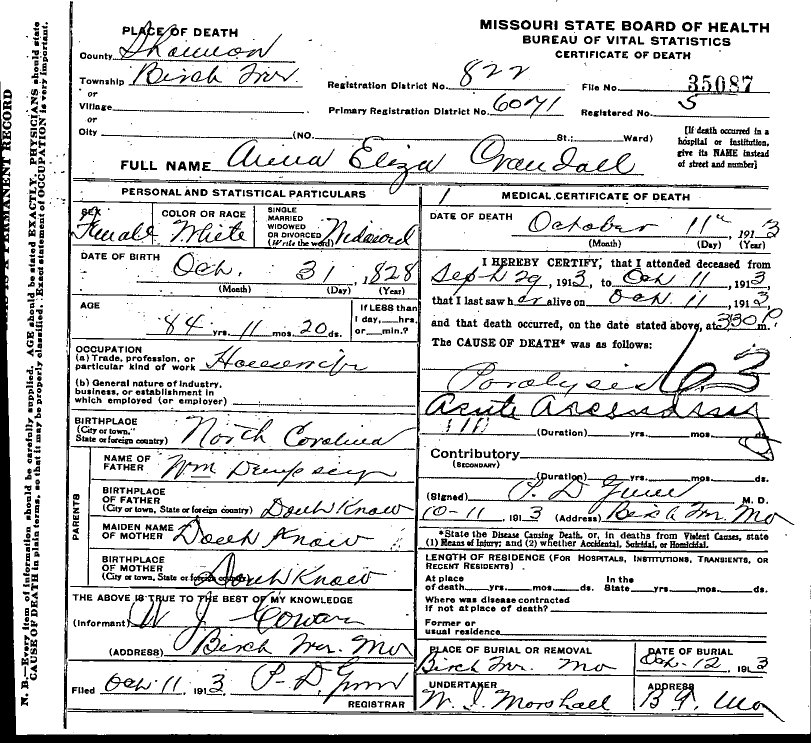 MISSOURI STATE BOARD OF HEALTH
BUREAU OF VITAL STATISTICS
CERTIFICATE OF DEATH
PLACE OF DEATH
County Shannon
Township Birch Tree
or
Village
or
City (NO. St.; Ward)
Registration District No. 822
File No. 35087
Primary Registration District No. 6071
Registered No. 5
[If death occurred in a
hospital or institution,
give its NAME instead
of street and number]
FULL NAME Anna Eliza Crandall
PERSONAL AND STATISTICAL PARTICULARS
SEX
Female
COLOR OR RACE
White
SINGLE
MARRIED
WIDOWED
OR DIVORCED
(Write the word) Widowed
DATE OF BIRTH
Oct. 31, 1828
(Month) (Day) (Year)
AGE
84 yrs. 11 mos. 20 ds.
If LESS than
1 day,...hrs.
or...min.?
OCCUPATION
(a) Trade, profession, or
particular kind of work Housewife
(b) General nature of industry,
business, or establishment in
which employed (or employer)
BIRTHPLACE
(City or town,
State or foreign country) North Carolina
PARENTS
NAME OF
FATHER Wm Dempsey
BIRTHPLACE
OF FATHER
(City or town, State or foreign country) Dont Know
MAIDEN NAME
OF MOTHER Dont Know
BIRTHPLACE
OF MOTHER
(City or town, State or foreign country) Dont Know
THE ABOVE IS TRUE TO THE BEST OF MY KNOWLEDGE
(Informant) W J Cowan
(ADDRESS) Birch Tree. Mo
Filed Oct 11, 1913 P. D. Gunn
REGISTRAR
MEDICAL CERTIFICATE OF DEATH
DATE OF DEATH October 11" 1913
(Month) (Day) (Year)
I HEREBY CERTIFY, that I attended deceased from
Sept 29, 1913, to Oct 11, 1913,
that I last saw her alive on Oct 11, 1913,
and that death occurred, on the date stated above, at 330 P m.
The CAUSE OF DEATH* was as follows:
Paralysis
Acute
(Duration) yrs. mos. ds.
Contributory
(SECONDARY)
(Duration) yrs. mos. ds.
(Signed) P. D. Gunn M. D.
10-11, 1913 (Address) Birch Tree. Mo
*State the Disease Causing Death, or, in deaths from Violent Causes, state
(1) Means of Injury; and (2) whether Accidental, Suicidal, or Homicidal.
LENGTH OF RESIDENCE (FOR HOSPITALS, INSTITUTIONS, TRANSIENTS, OR
RECENT RESIDENTS)
At place
of death yrs. mos. ds.
In the
State yrs. mos. ds.
Where was disease contracted
if not at place of death?
Former or
usual residence
PLACE OF BURIAL OR REMOVAL
Birch Tree. Mo
DATE OF BURIAL
Oct-12, 1913
UNDERTAKER
W. J. Marshall
ADDRESS
B T. Mo
N. B.—Every item of information should be carefully supplied. AGE should be stated EXACTLY. PHYSICIANS should state
CAUSE OF DEATH in plain terms, so that it may be properly classified. Exact statement of OCCUPATION is very important.
IS A PERMANENT RECORD